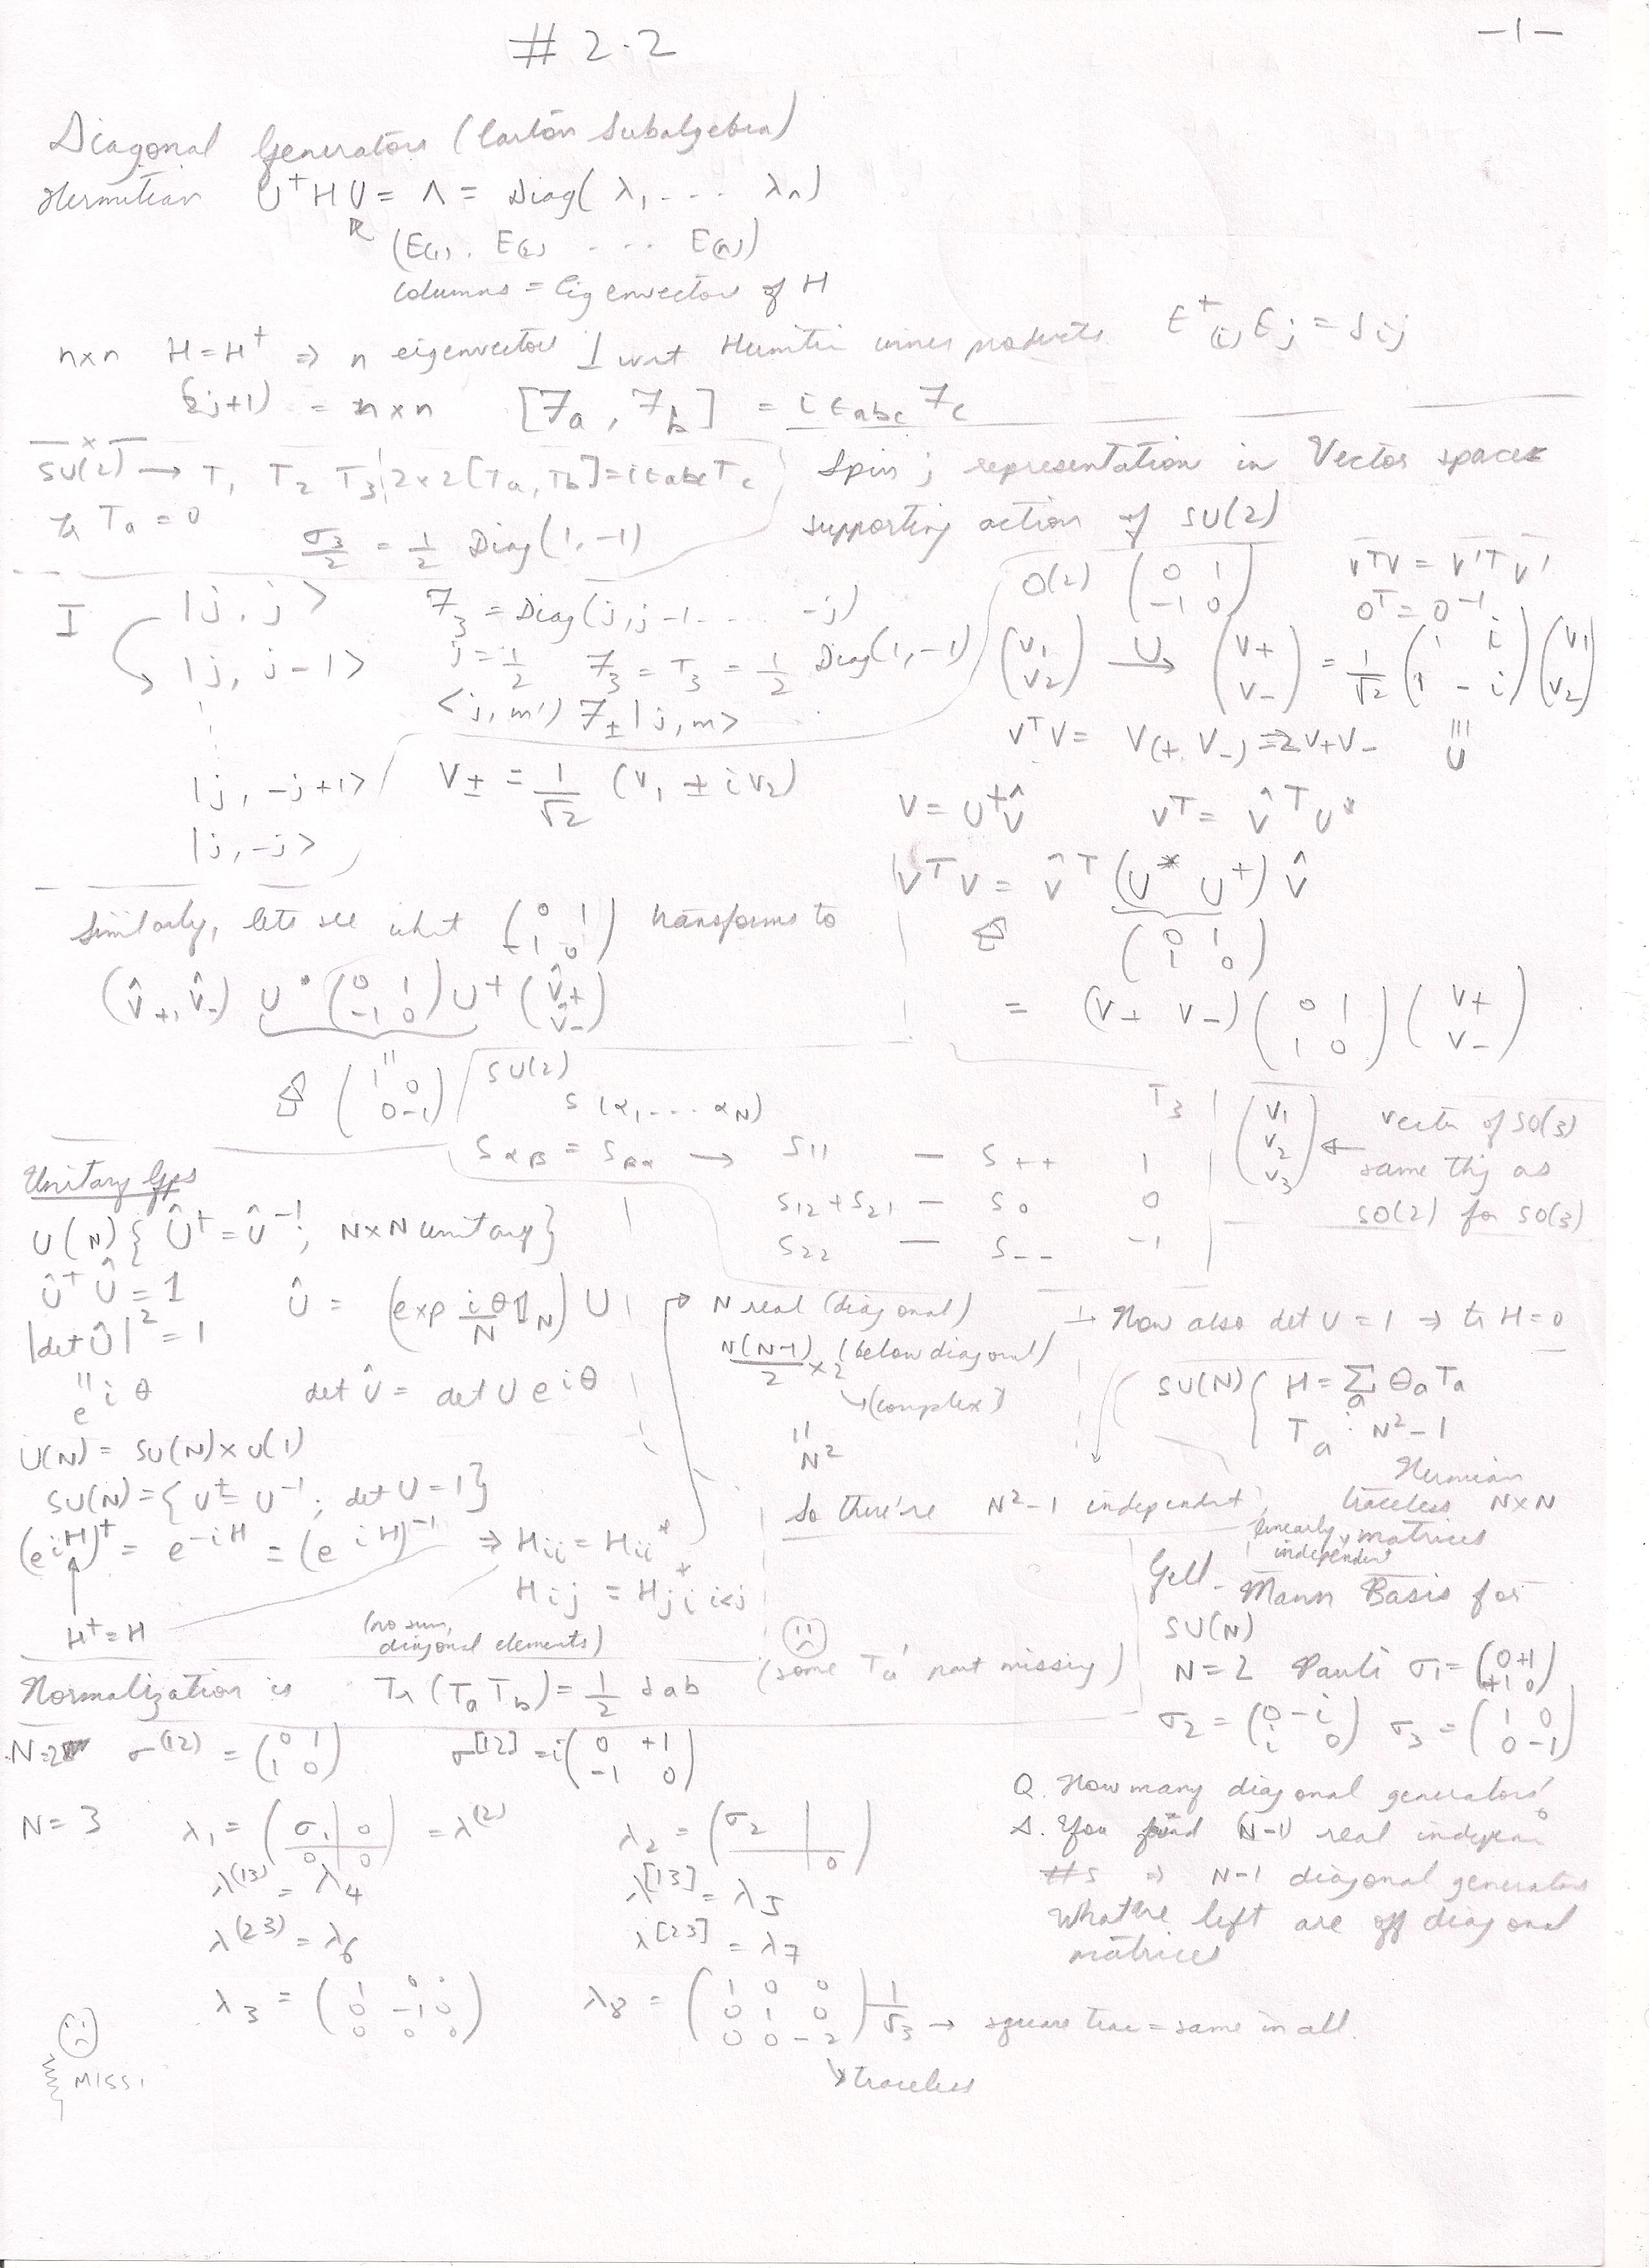 -1-
# 2.2
Diagonal Generators (Cartan Subalgebra)
Hermitian U†HU = Λ = Diag(λ₁ ... λₙ)
(E(1), E(2) ... E(n))
columns = Eigenvector of H
n×n H = H† ⇒ n eigenvectors ⊥ wrt Hermitian inner products. E†(i) Ej = δij
(2j+1) = n×n [Ja, Jb] = i εabc Jc
SU(2) → T₁ T₂ T₃ 2×2 [Ta, Tb] = iεabc Tc
tr Ta = 0
σ₃/2 = 1/2 Diag(1, -1)
Spin j representation in Vector spaces
supporting action of SU(2)
I
|j, j>
|j, j-1>
⋮
|j, -j+1>
|j, -j>
J₃ = Diag(j, j-1 ... -j)
j = 1/2 J₃ = T₃ = 1/2 Diag(1, -1)
<j, m'| J± |j, m>
V± = 1/√2 (V₁ ± iV₂)
O(2) (0 1 / -1 0) VᵀV = V'ᵀV'
Oᵀ = O⁻¹
(V₁ / V₂) →U (V+ / V-) = 1/√2 (1 i / 1 -i) (V₁ / V₂)
VᵀV = V(+ V-) = 2V+V-
≡ U
V = U†V̂ Vᵀ = V̂ᵀU*
VᵀV = V̂ᵀ(U* U†) V̂
(0 1 / 1 0)
= (V+ V-) (0 1 / 1 0) (V+ / V-)
Similarly, lets see what (0 1 / -1 0) transforms to
(V̂+, V̂-) U* (0 1 / -1 0) U† (V̂+ / V̂-)
(1 0 / 0 -1)
SU(2)
S(α₁, ... αN)
T₃
Sαβ = Sβα → S11 - S++ 1
S12+S21 - S0 0
S22 - S-- -1
(V₁ / V₂ / V₃) ← vector of SO(3)
same thg as
SO(2) for SO(3)
Unitary Gps
U(N) { Û† = Û⁻¹; N×N unitary}
Û†Û = 1
|det Û|² = 1
" e^iθ
Û = (exp iθ/N 𝟙N) U
det Û = det U e^iθ
U(N) = SU(N)×U(1)
SU(N) = {U† = U⁻¹; det U = 1}
(e^iH)† = e^-iH = (e^iH)⁻¹ ⇒ Hii = Hii*
Hij = Hji* i<j
H† = H
N real (diagonal)
N(N-1)/2 ×2 (below diagonal)
↳ (complex)
" N²
⊥ Now also det U = 1 ⇒ tr H = 0
SU(N) { H = Σa θaTa
Ta : N²-1
Hermian
traceless N×N
matrices
So there're N²-1 independent,
linearly independent
(no sum, diagonal elements)
Normalization is Tr(TaTb) = 1/2 δab
(some Ta' part missing)
Gell-Mann Basis for
SU(N)
N=2 Pauli σ₁ = (0 +1 / +1 0)
σ₂ = (0 -i / i 0) σ₃ = (1 0 / 0 -1)
N=2 σ^(12) = (0 1 / 1 0) σ^[12] = i(0 +1 / -1 0)
N=3 λ₁ = (σ₁ 0 / 0 0) = λ^(2) λ₂ = (σ₂ / 0)
λ^(13) = λ₄ λ^[13] = λ₅
λ^(23) = λ₆ λ^[23] = λ₇
λ₃ = (1 0 0 / 0 -1 0 / 0 0 0) λ₈ = (1 0 0 / 0 1 0 / 0 0 -2) 1/√3 → square trac = same in all.
↳ traceless
Q. How many diagonal generators?
A. You find (N-1) real indepen
#s ⇒ N-1 diagonal generators
What're left are off diagonal
matrices
MISSI